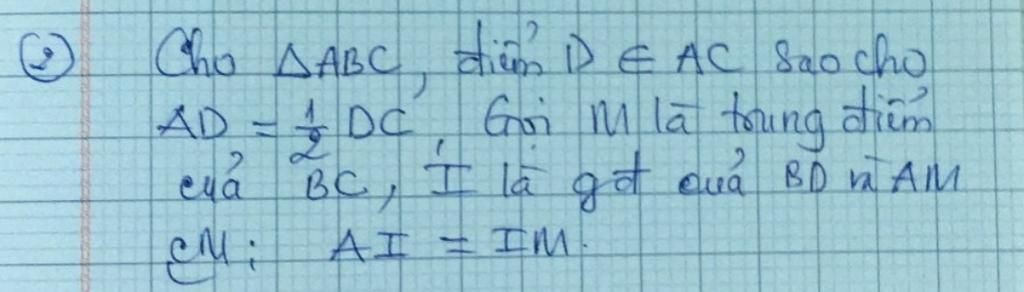 ② Cho ΔABC, điểm D ∈ AC sao cho
AD = 1/2 DC. Gọi M là trung điểm
của BC, I là gđ của BD và AM
CM: AI = IM.